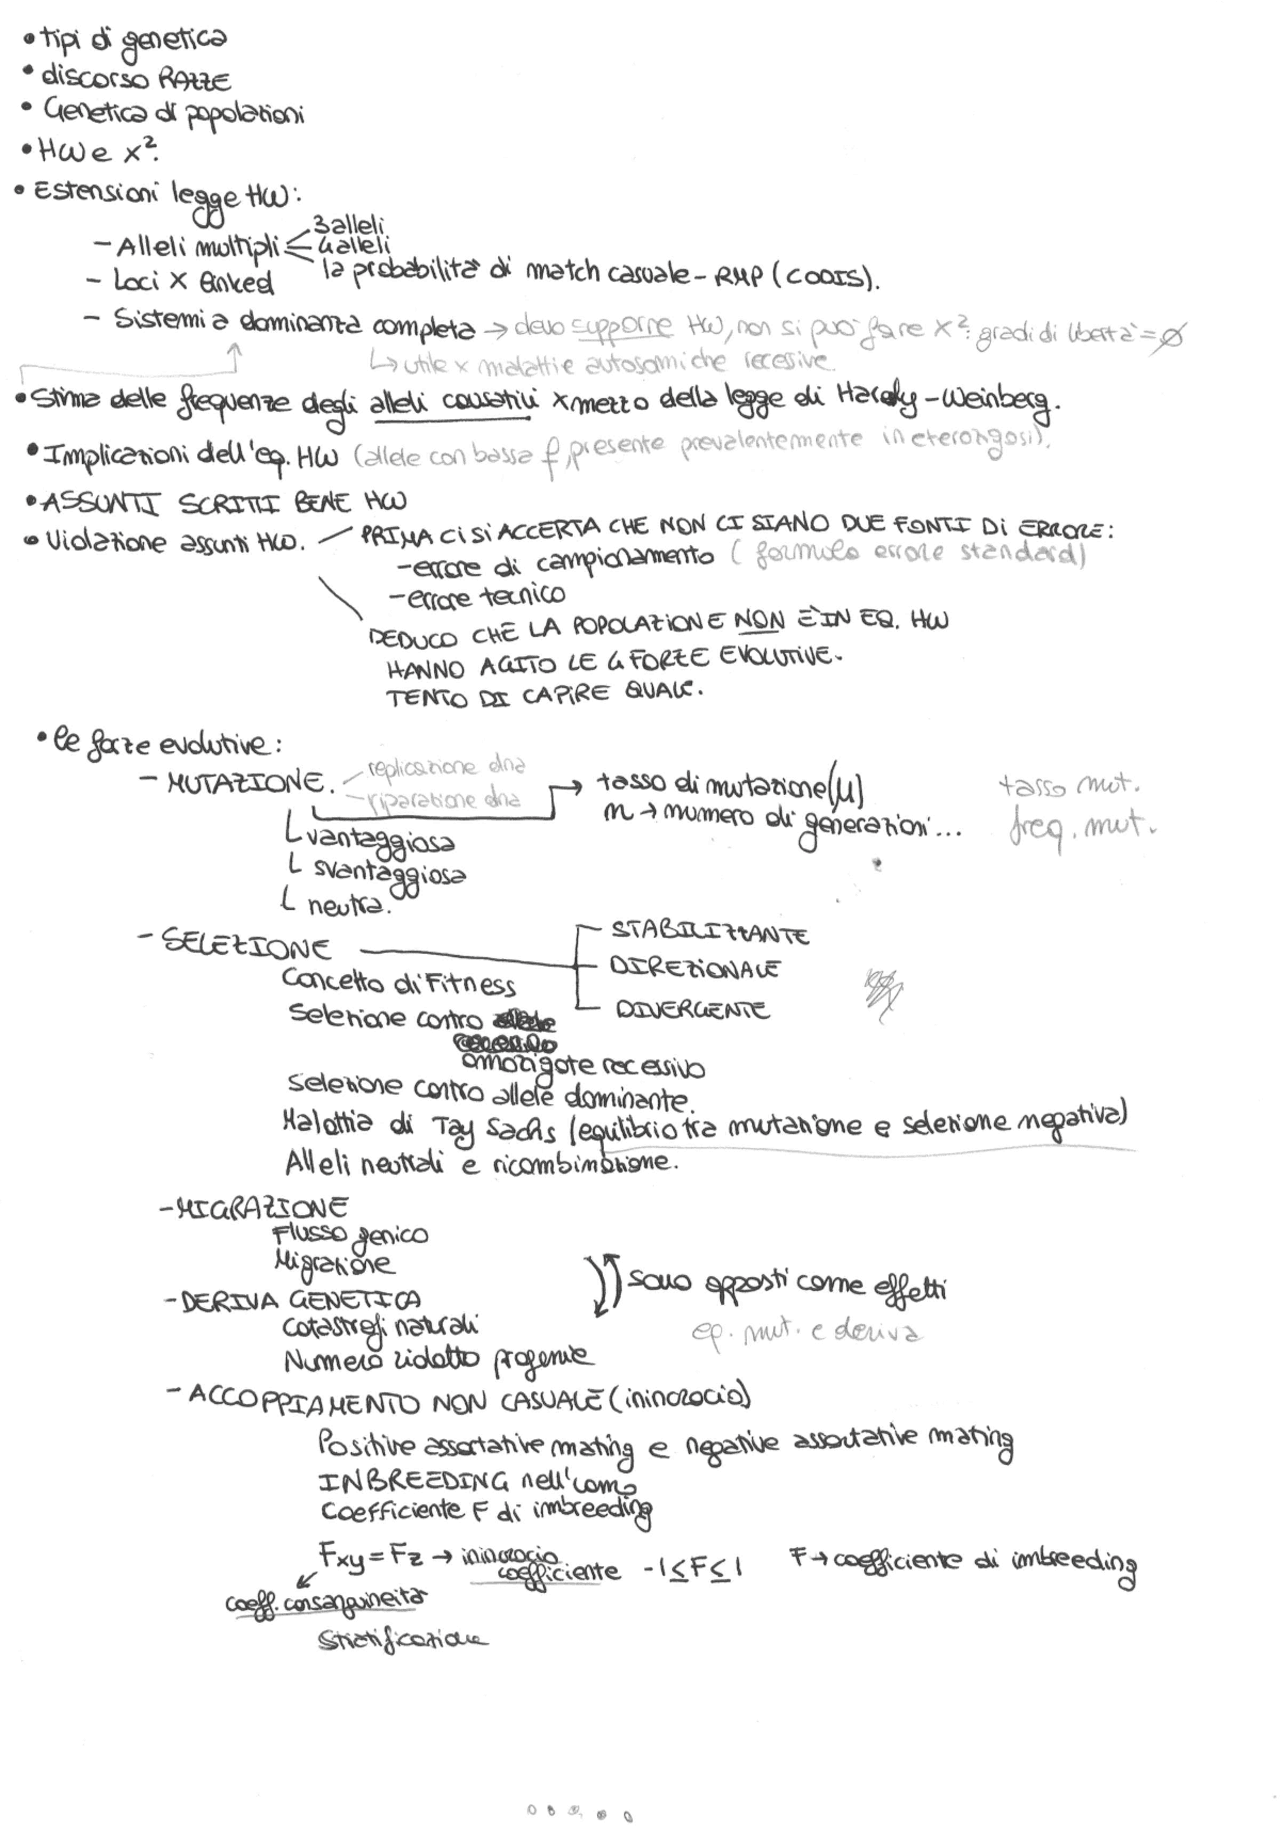 • tipi di genetica
• discorso RAZZE
• Genetica di popolazioni
• HW e x².
• Estensioni legge HW:
- Alleli multipli 3 alleli
4 alleli
la probabilità di match casuale - RMP (CODIS).
- Loci X linked
- Sistemi a dominanza completa → devo supporre HW, non si può fare X²: gradi di libertà = ∅
↳ utile x malattie autosomiche recessive.
• Stima delle frequenze degli alleli causativi x mezzo della legge di Hardy-Weinberg.
• Implicazioni dell'eq. HW (allele con bassa f, presente prevalentemente in eterozigosi).
• ASSUNTI SCRITTI BENE HW
• Violazione assunti HW. PRIMA CI SI ACCERTA CHE NON CI SIANO DUE FONTI DI ERRORE:
- errore di campionamento (formula errore standard)
- errore tecnico
DEDUCO CHE LA POPOLAZIONE NON È IN EQ. HW
HANNO AGITO LE 4 FORZE EVOLUTIVE.
TENTO DI CAPIRE QUALE.
• le forze evolutive:
- MUTAZIONE. - replicazione dna
- riparazione dna
→ tasso di mutazione (μ)
n → numero di generazioni...
tasso mut.
freq. mut.
vantaggiosa
svantaggiosa
neutra.
- SELEZIONE
STABILIZZANTE
DIREZIONALE
DIVERGENTE
Concetto di Fitness
Selezione contro
omozigote recessivo
Selezione contro allele dominante.
Malattia di Tay Sachs (equilibrio tra mutazione e selezione negativa)
Alleli neutrali e ricombinazione.
- MIGRAZIONE
Flusso genico
Migrazione
- DERIVA GENETICA
sono opposti come effetti
eq. mut. e deriva
Catastrofi naturali
Numero ridotto progenie
- ACCOPPIAMENTO NON CASUALE (inincrocio)
Positive assortative mating e negative assortative mating
INBREEDING nell'uomo
Coefficiente F di imbreeding
Fxy = Fz → inincrocio
coefficiente -1 ≤ F ≤ 1 F → coefficiente di imbreeding
coeff. consanguineità
Stratificazione